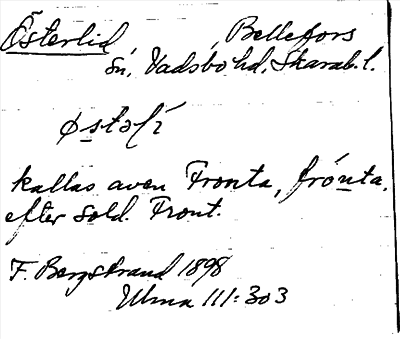 Österlid, Bellefors
sn, Vadsbo hd, Skarab. l.
østəlí
kallas även Fronta, frónta.
efter sold. Front.
F. Bergstrand 1898
Ulma 111:303